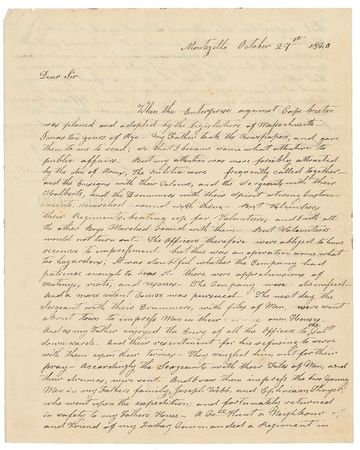 Montizillo October 27th 1820
Dear Sir
When the Enterprize against Cape breton
was planed and adopted by the Legislature of Massachusetts
I was ten years of Age — My Father took the Newspapers, and gave
them to me to read; so that I became somewhat attentive to
public affairs. But my attention was more forcibly attracted
by the din of Arms, The Militia were frequently called together
and the Ensigns with their Colours, and the Sergeants with their
Halberts, and the Drummers with their spirit stirring Instru-
ments, marched round with them — Beat Volunteers
their Regiments, beating up for Volunteers, and with all
the other Boys Marched round with them — But Volunteers
would not turn out. The Officers therefore were obliged to have
recourse to impressment, but this was an operation somewhat
too hazardous, it was doubtful whether the Company had
patience enough to bear it — there were apprehensions of
mutinys, riots, and rescues. The Company were dismissed
and a more silent Course was pursued. The next day the
Sergeants with their Drummers, with files of Men, were sent
about town to impress Men in their own Houses
And as my Father enjoyed the Envy of all the Officers to
downwards. And their resentment for his refusing to serve
with them upon their terms — They singled him out for their
prey — Accordingly the Sergeants with their Files of Men, and
their drummers, were sent. And I saw them impress the two Young
Men in my Fathers family, Joseph Webb, and Ephraim Thayer,
who went upon the expedition; and fortunately returned
in safety to my Fathers House — A Hunt a Neighbour
and Friend of my Father Commanded a Regiment in